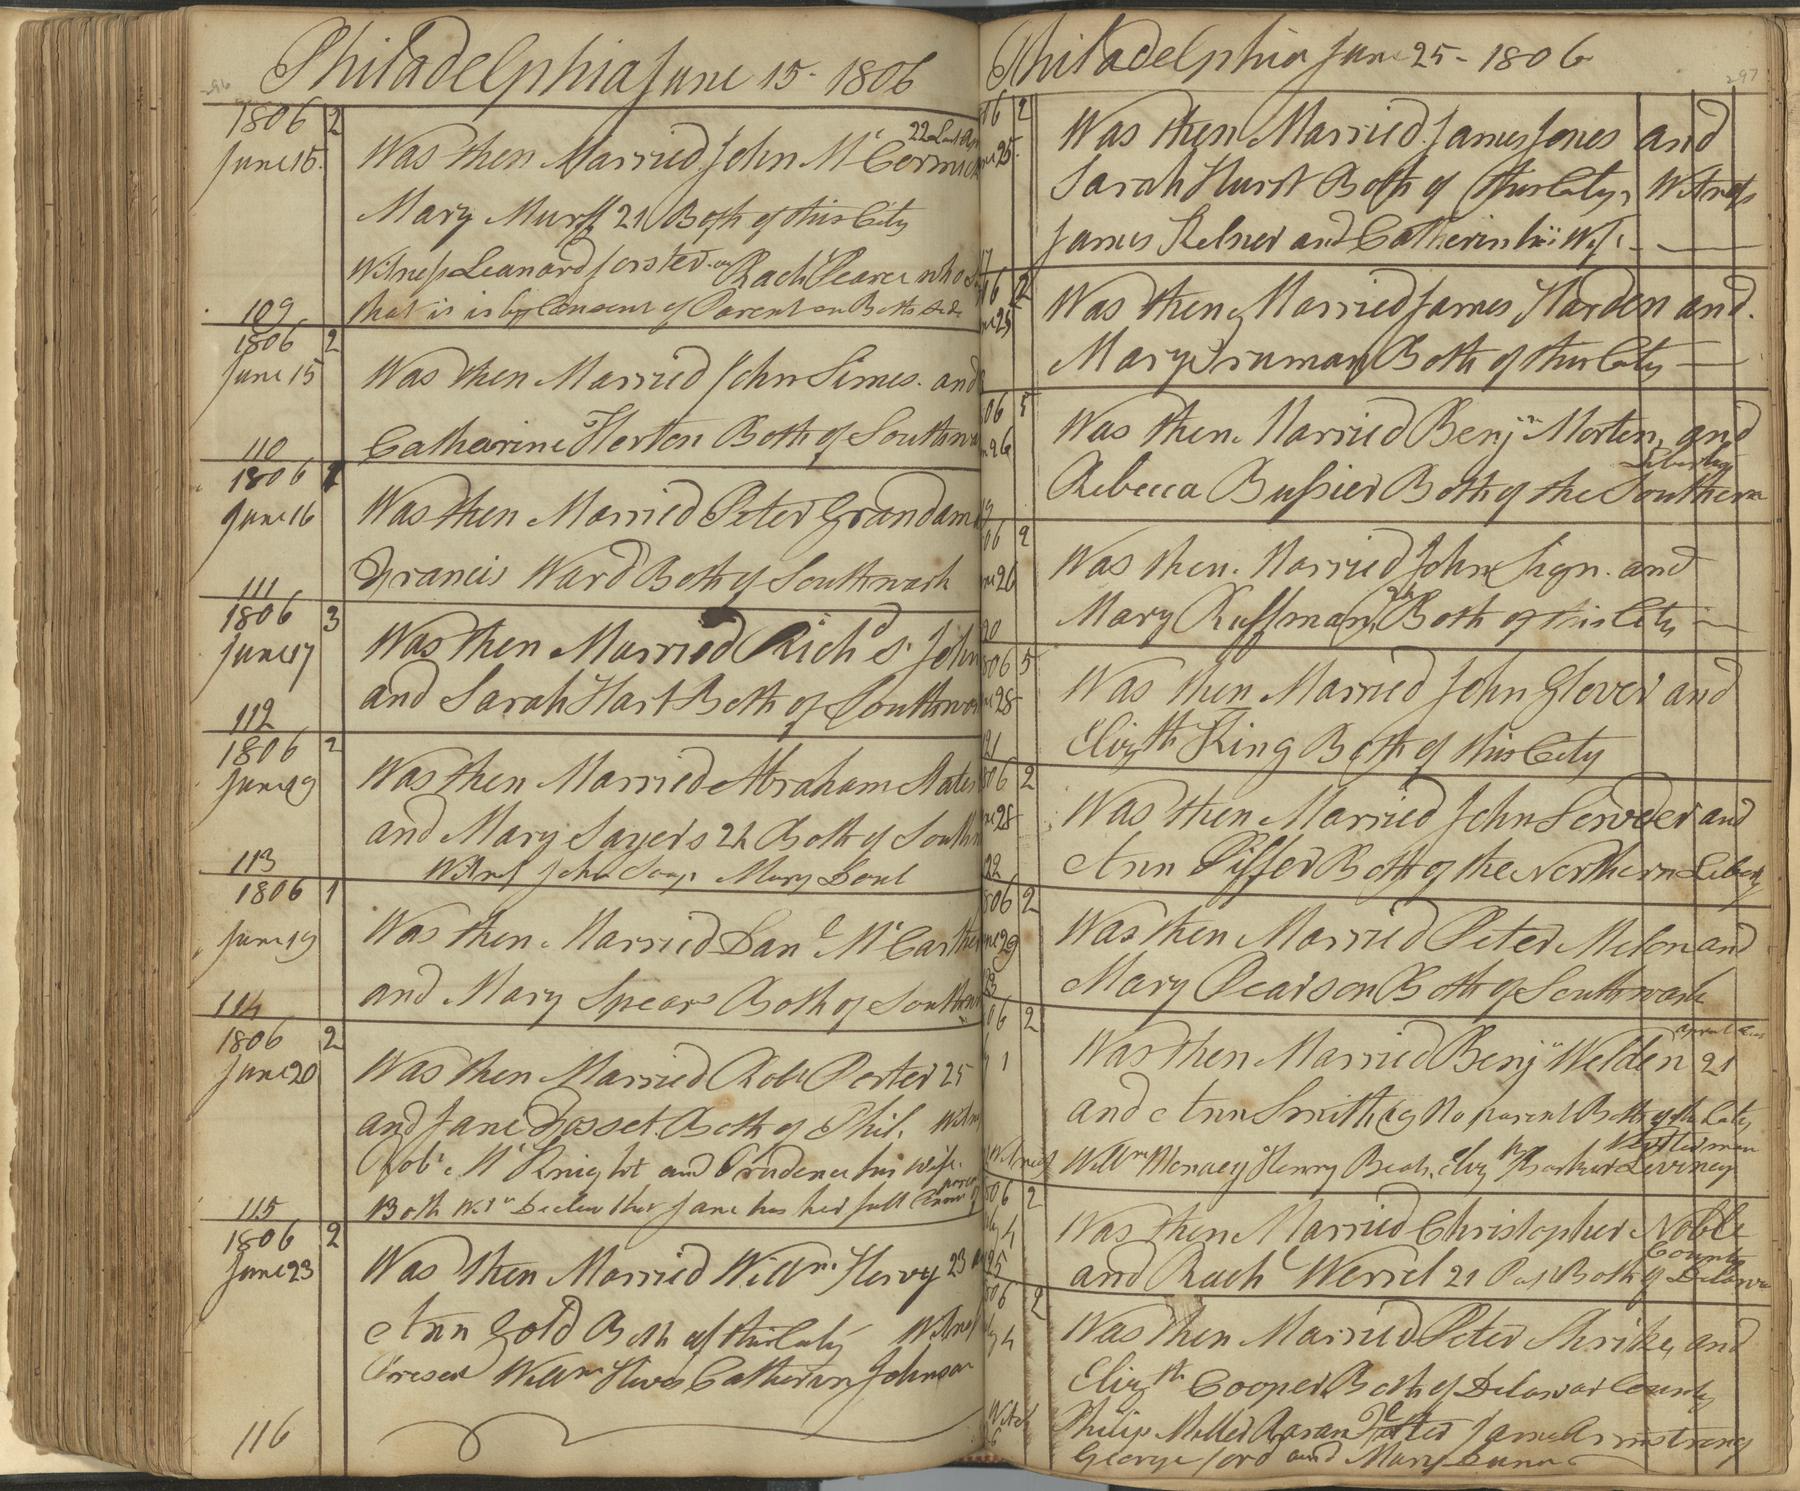 Philadelphia June 15 - 1806
1806 2
June 15
22 Last
Was then Married John Mc Cormick
Mary Murff 21 Both of this City
Witness Leanard forster Rach Pearce who
that it is by Consent of Parent on Both Side
109
1806 2
June 15
Was then Married John Simes. and
Catharine Horton Both of Southw
110
1806 1
June 16
Was then Married Peter Grandam
Francis Ward Both of Southwark
111
1806 3
June 17
Was then Married Rich'd S. John
and Sarah Hart Both of Southwar
112
1806 2
June 19
Was then Married Abraham
and Mary Sayers 24 Both of South
Witnes John Mary
113
1806 1
June 19
Was then Married Danl Mc Carthe
and Mary Spears Both of Southw
114
1806 2
June 20
Was then Married Robt Porter 25
and Jane Fosset Both of Phil. Witn
Robt Mc Knight and Prudence his wife
Both Declare that Jane has her full
115
1806 2
June 23
Was then Married Willm Hervy 23
Ann Gold Both of this Caty Witnes
Present Willm Catherin Johnson
116
Philadelphia June 25 - 1806
297
06 2
25
Was then Married James Jones and
Sarah Hurst Both of this City, Witness
James Kelner and Catherin his Wife
06 2
25
Was then Married James Harden and.
Mary Truman Both of this City
06 5
26
Was then. Married Benjn Morten, and
Liberty
Rebecca Bussier Both of the Southern
06 2
26
Was then. Married John Sign. and
Mary Kuffman, Both of this City
20
806 5
28
Was then Married John Glover and
Elizth King Both of this City
21
806 2
28
Was then Married John and
Ann Piffer Both of the Northern Liberty
22
806 2
29
Was then Married Peter Melon and
Mary Pearson Both of Southwark
06 2
1
Was then Married Benjn Welden 21
and Ann Smith 19 No parent Both of the Caty
Witness Willm Henry Elizth
806 2
4
Was then Married Christopher Noble
County
and Rach Werrel 21 Both of Delawar
25
806 2
4
Was then Married Peter Shrike, and
Elizth Cooper Both of Delawar County
Philip Miller Aaran James Armstrong
George ford and Mary